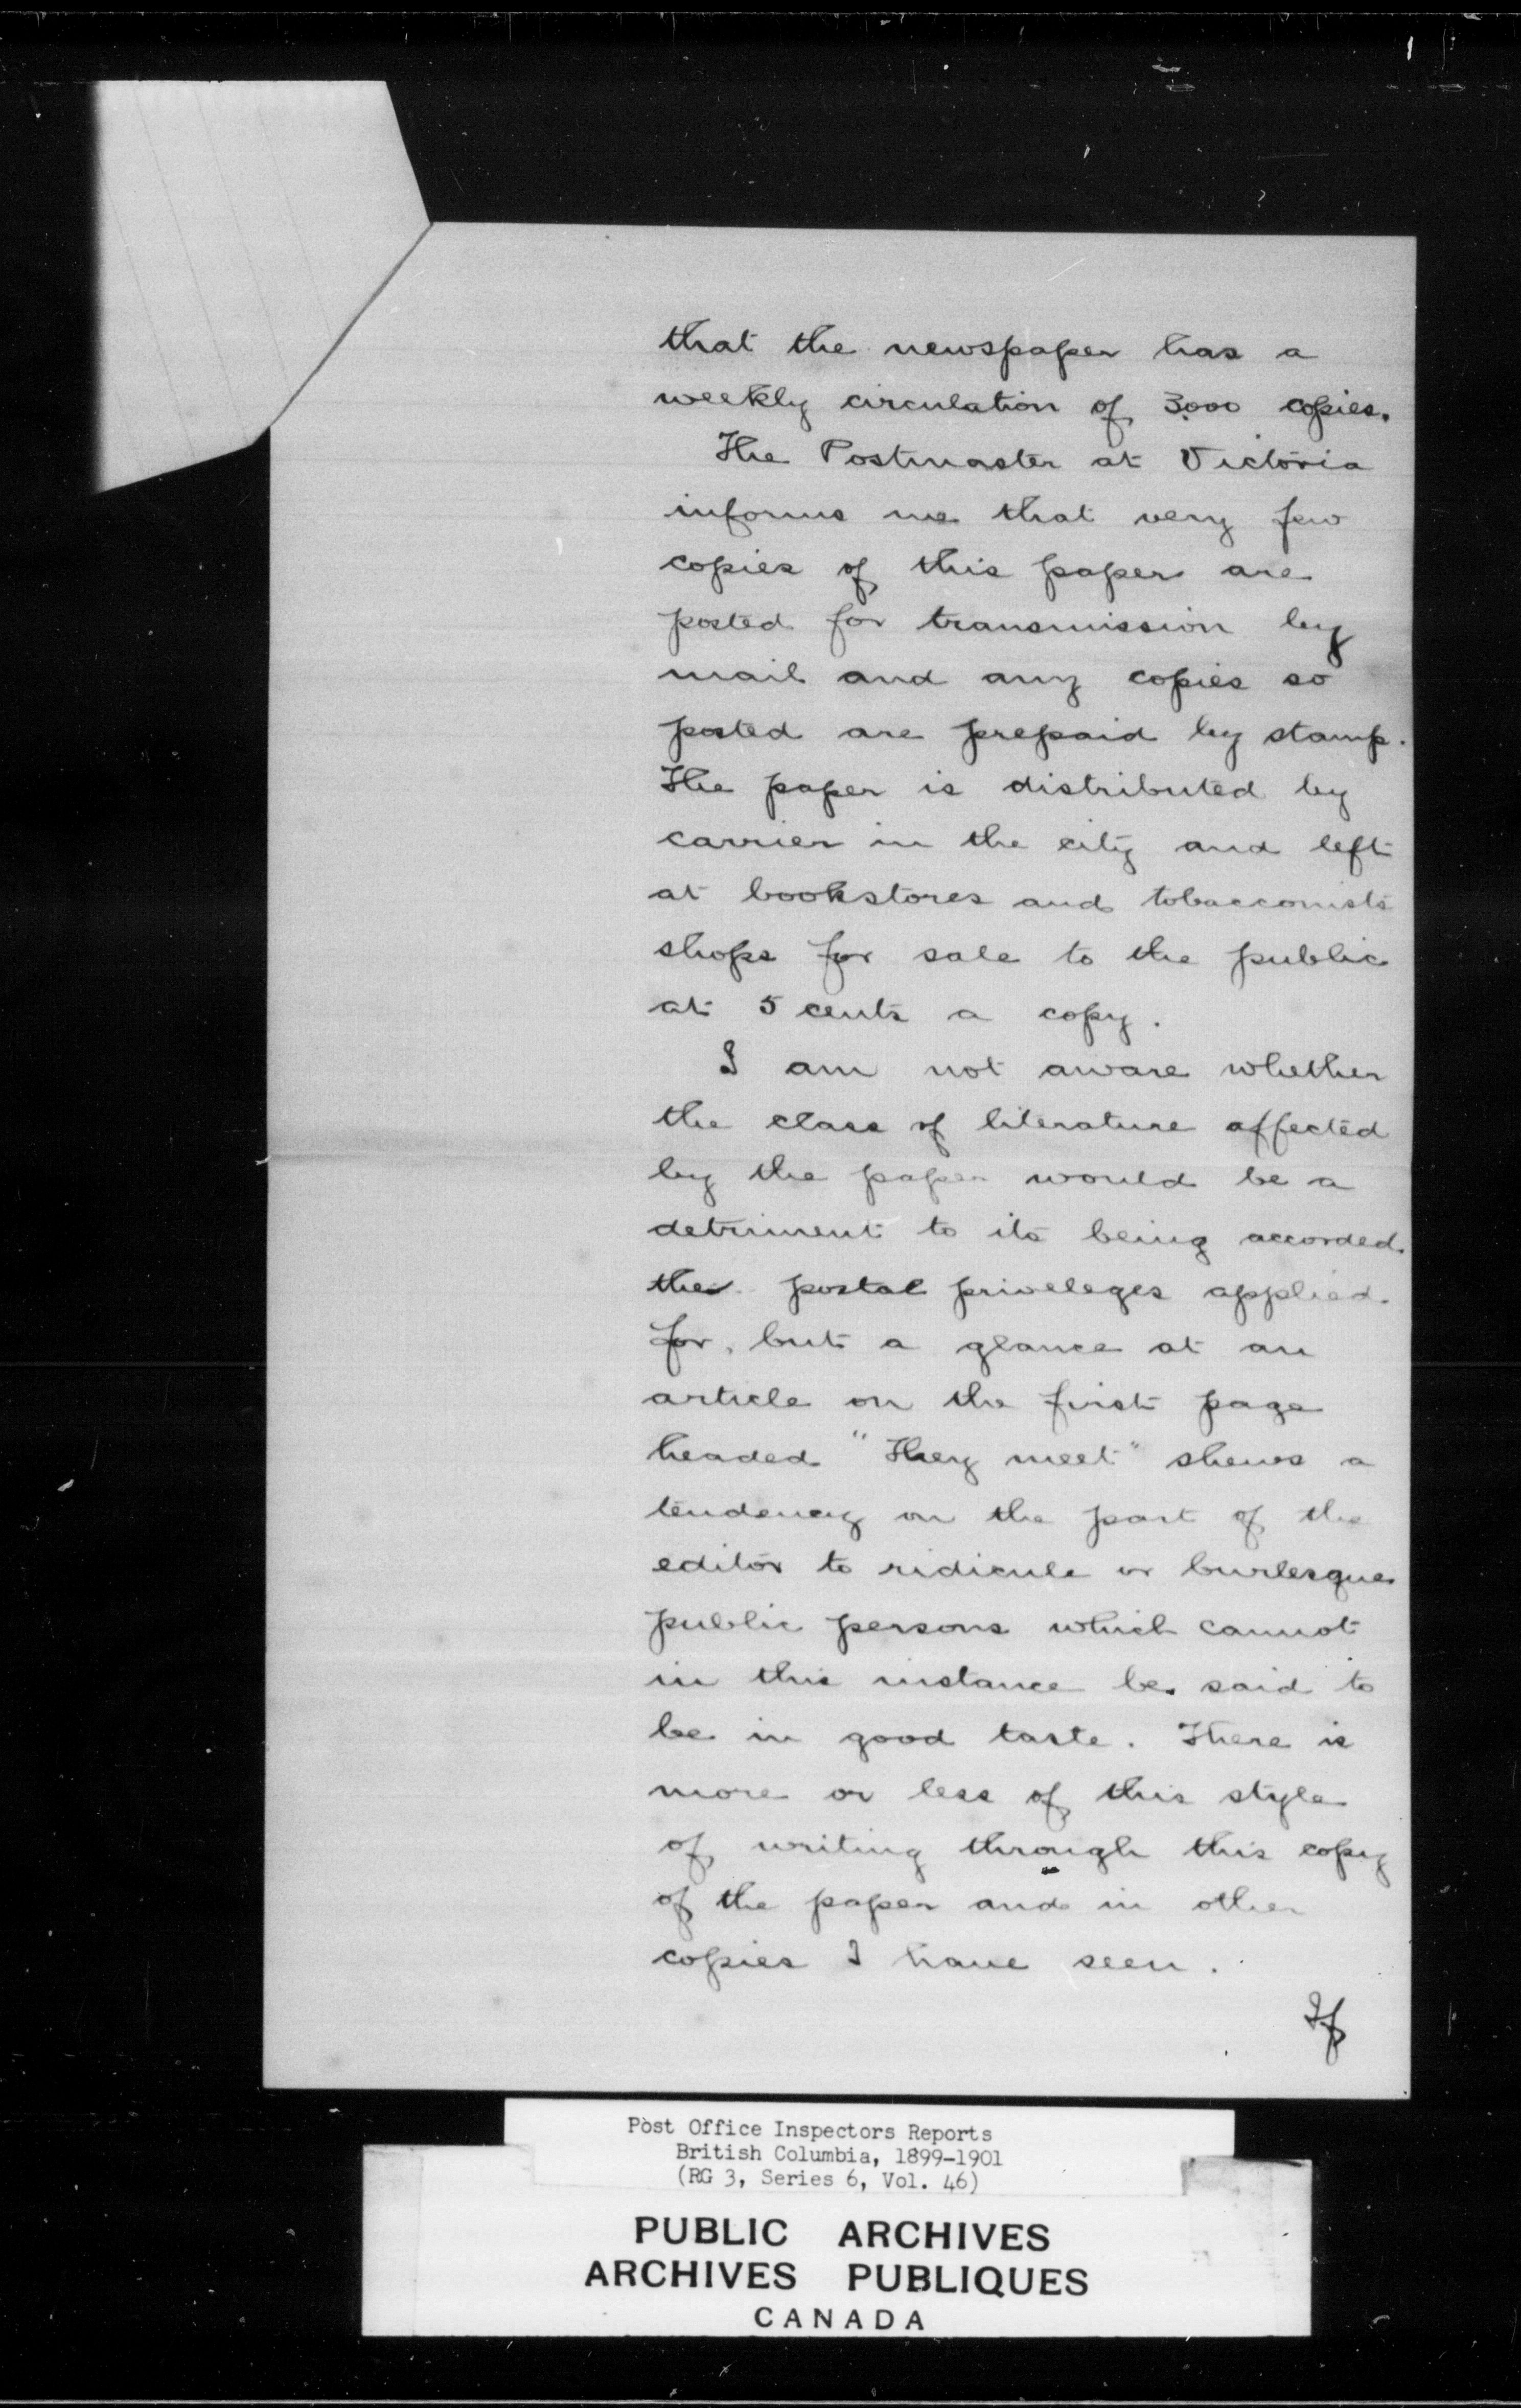 that the newspaper has a
weekly circulation of 3000 copies.
The Postmaster at Victoria
informs me that very few
copies of this paper are
posted for transmission by
mail and any copies so
posted are prepaid by stamp.
The paper is distributed by
carrier in the city and left
at bookstores and tobacconists
shops for sale to the public
at 5 cents a copy.
I am not aware whether
the class of literature affected
by the paper would be a
detriment to its being accorded
the postal priveleges applied
for, but a glance at an
article on the first page
headed "They meet" shews a
tendency on the part of the
editor to ridicule or burlesque
public persons which cannot
in this instance be said to
be in good taste. There is
more or less of this style
of writing through this copy
of the paper and in other
copies I have seen.
If
Post Office Inspectors Reports
British Columbia, 1899-1901
(RG 3, Series 6, Vol. 46)
PUBLIC ARCHIVES
ARCHIVES PUBLIQUES
CANADA